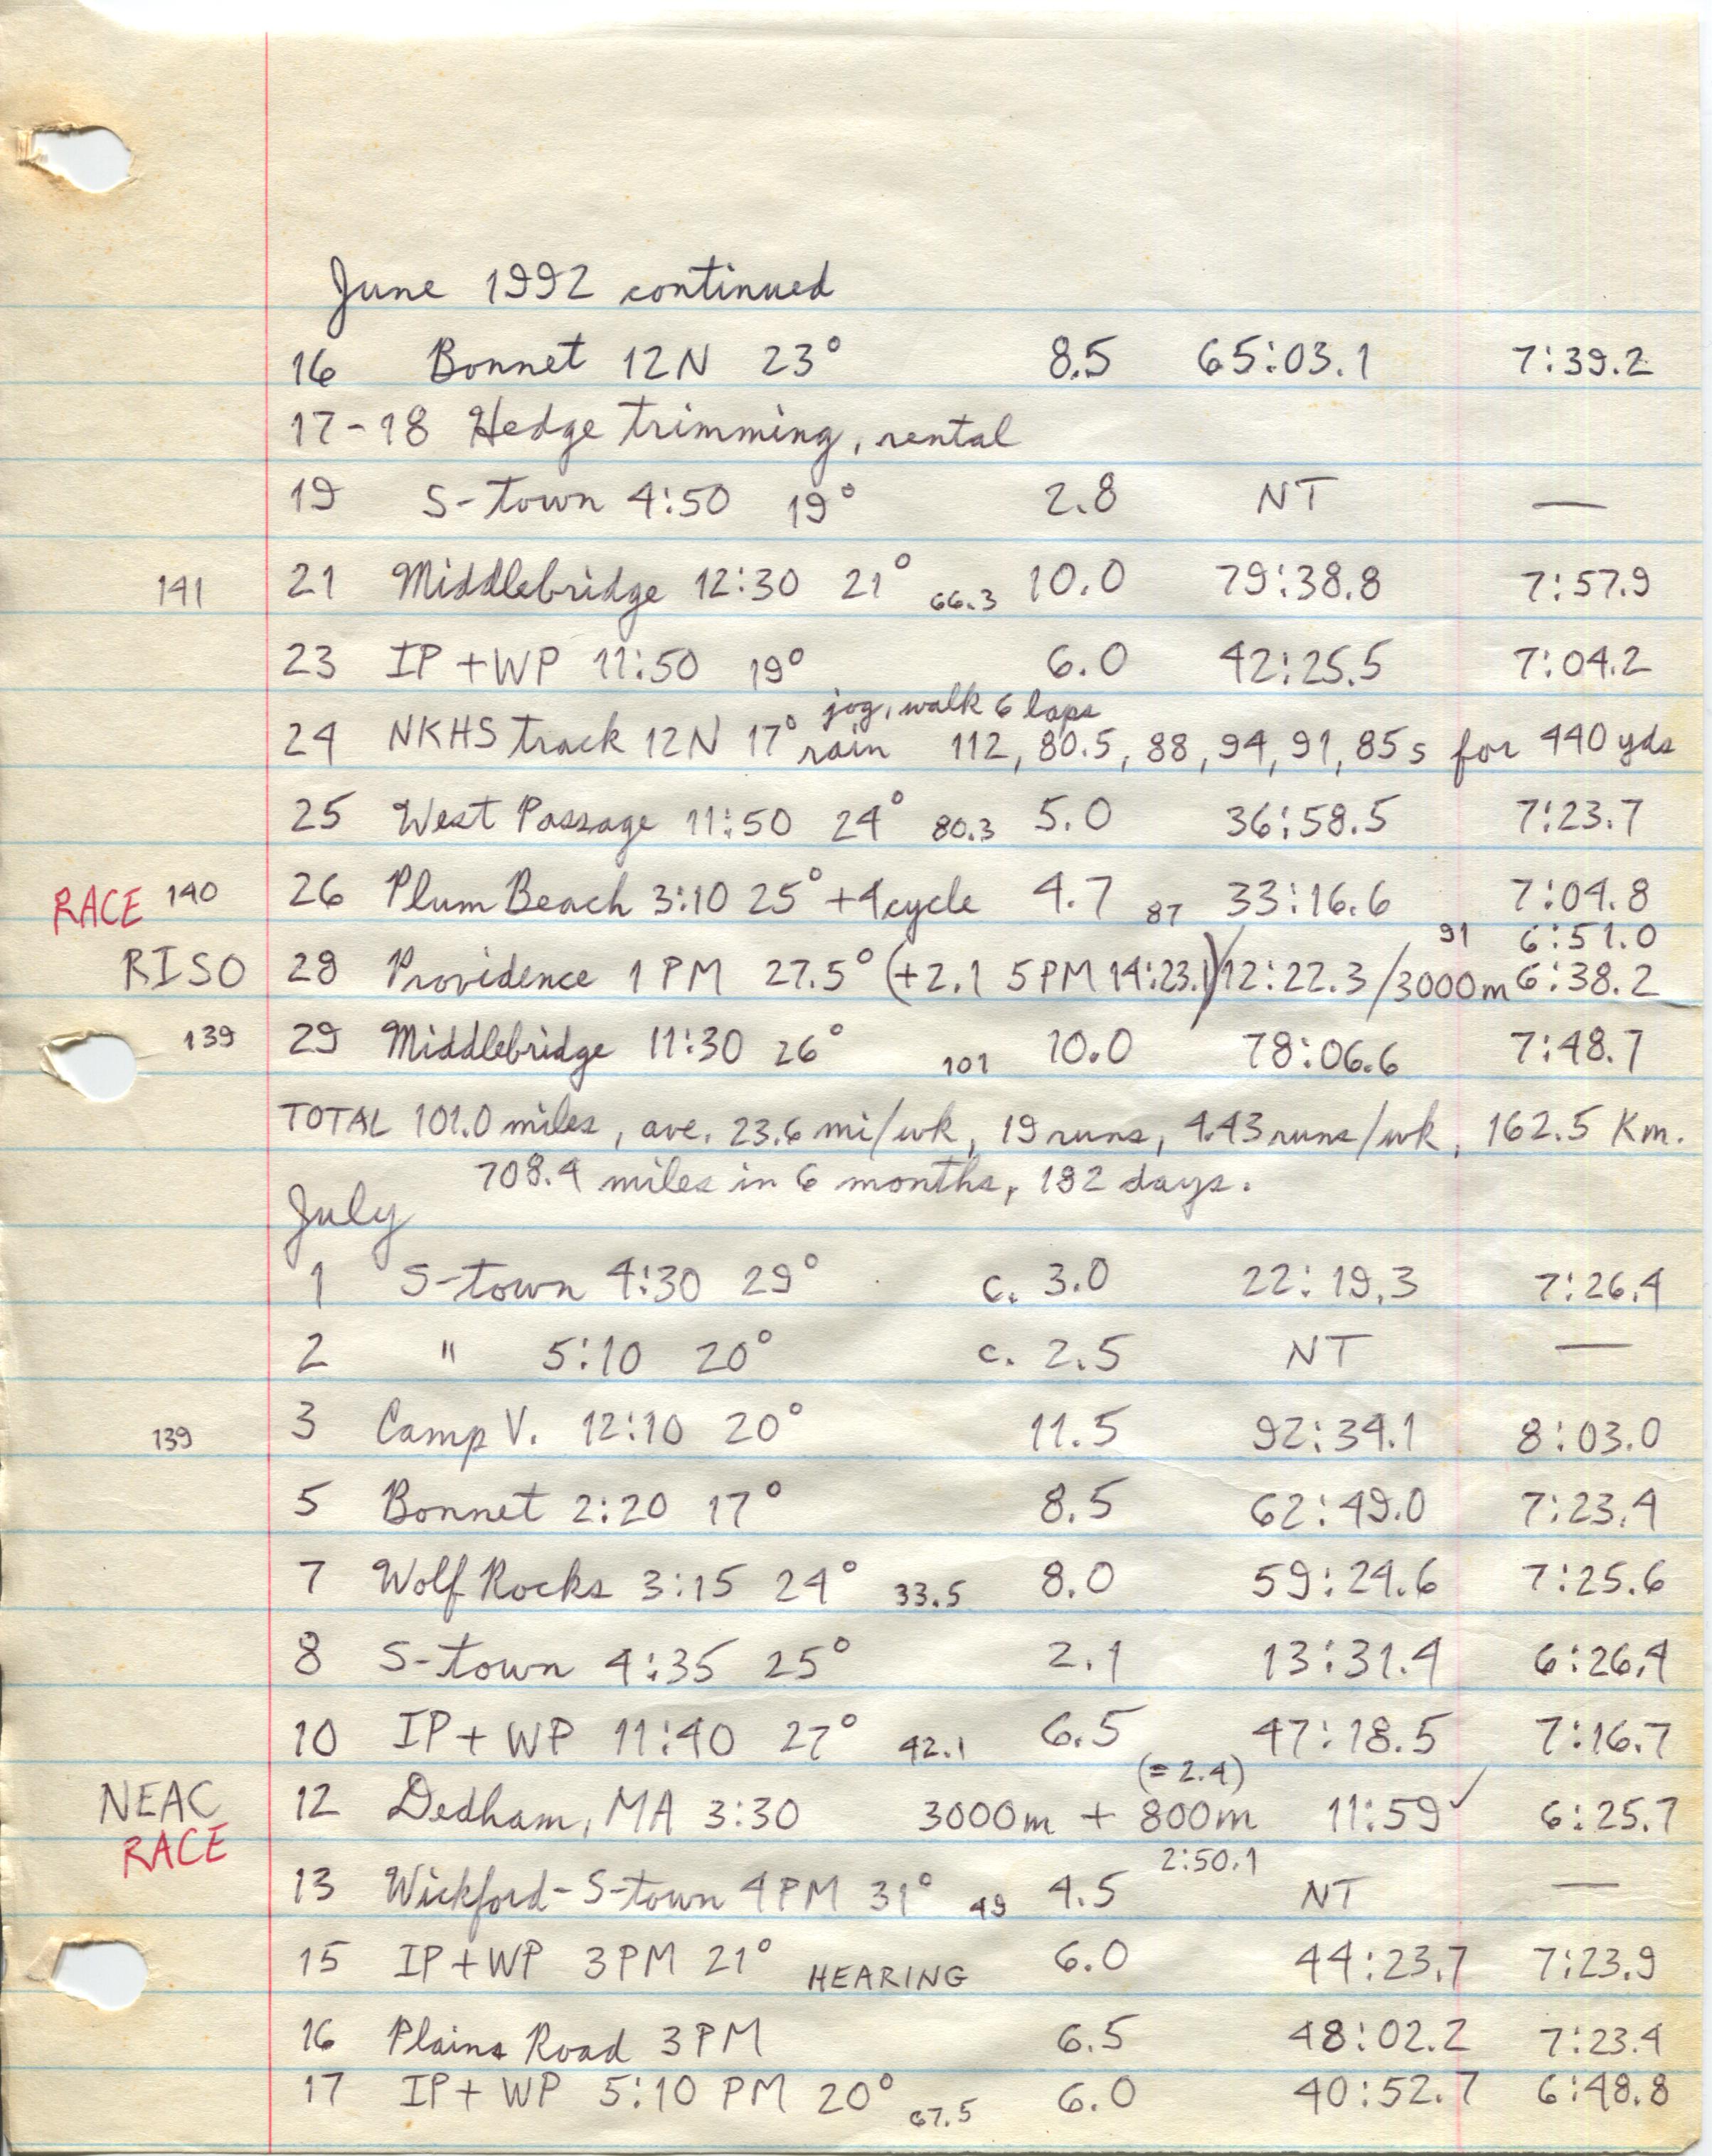 June 1992 continued
16 Bonnet 12N 23° 8.5 65:03.1 7:39.2
17-18 Hedge trimming, rental
19 S-town 4:50 19° 2.8 NT —
141 21 Middlebridge 12:30 21° 66.3 10.0 79:38.8 7:57.9
23 IP + WP 11:50 19° 6.0 42:25.5 7:04.2
jog, walk 6 laps
24 NKHS track 12N 17° rain 112, 80.5, 88, 94, 91, 85s for 440 yds
25 West Passage 11:50 24° 80.3 5.0 36:58.5 7:23.7
RACE 140 26 Plum Beach 3:10 25° + 4cycle 4.7 87 33:16.6 7:04.8
91 6:51.0
RISO 28 Providence 1 PM 27.5° (+2.1 5PM 14:23.1) 12:22.3/3000m 6:38.2
139 29 Middlebridge 11:30 26° 101 10.0 78:06.6 7:48.7
TOTAL 101.0 miles, ave. 23.6 mi/wk, 19 runs, 4.43 runs/wk, 162.5 Km.
708.4 miles in 6 months, 182 days.
July
1 S-town 4:30 29° c. 3.0 22:19.3 7:26.4
2 " 5:10 20° c. 2.5 NT —
139 3 Camp V. 12:10 20° 11.5 92:34.1 8:03.0
5 Bonnet 2:20 17° 8.5 62:49.0 7:23.4
7 Wolf Rocks 3:15 24° 33.5 8.0 59:24.6 7:25.6
8 S-town 4:35 25° 2.1 13:31.4 6:26.4
10 IP + WP 11:40 27° 42.1 6.5 47:18.5 7:16.7
(= 2.4)
NEAC 12 Dedham, MA 3:30 3000m + 800m 11:59✓ 6:25.7
RACE 2:50.1
13 Wickford-S-town 4PM 31° 49 4.5 NT —
15 IP + WP 3PM 21° HEARING 6.0 44:23.7 7:23.9
16 Plains Road 3PM 6.5 48:02.2 7:23.4
17 IP + WP 5:10 PM 20° 67.5 6.0 40:52.7 6:48.8